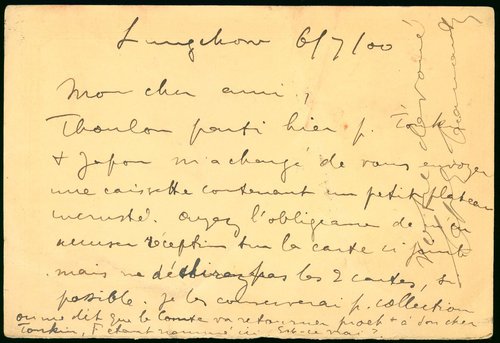 Lungchow 6/7/00
Mon cher ami,
Thoulon parti hier p. Tonk
+ Japon m'a chargé de vous envoyer
une caissette contenant un petit plateau
incrusté. Ayez l'obligeance de m'en
accuser réception sur la carte ci jointe
mais ne détachez pas les 2 cartes, si
possible. Je les conserverai p. collection
on me dit que le Comte va retourner proch + à son cher
Tonkin, F étant nommé ici. Est-ce vrai?
dévoué